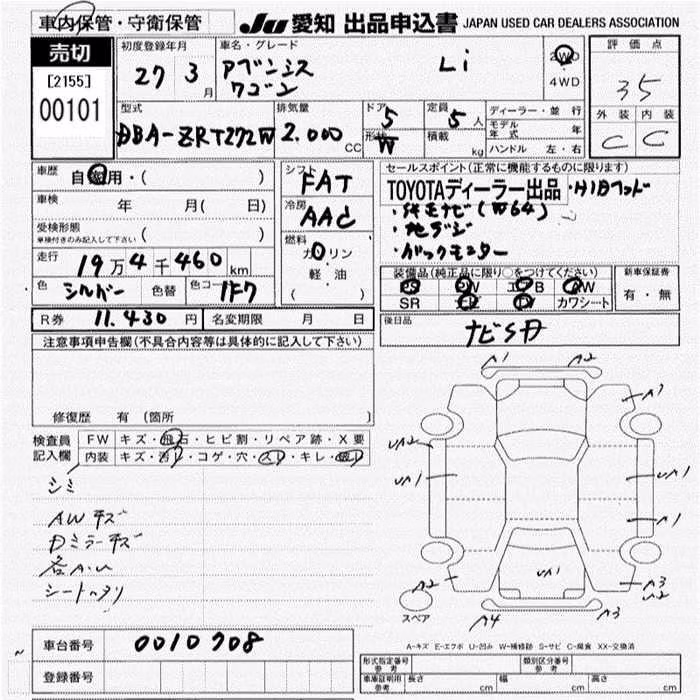 車内保管・守衛保管
JU 愛知 出品申込書 JAPAN USED CAR DEALERS ASSOCIATION
売切
[2155]
00101
初度登録年月
27 3 月
車名・グレード
アベンシス
ワゴン
Li
2WD
4WD
評価点
35
外装 内装
C C
型式
DBA-ZRT272W
排気量
2.000 CC
ドア 5
形状 W
定員 5 人
積載 kg
ディーラー・並行
モデル年式 年
ハンドル 左・右
車歴
自家用・( )
車検 年 月( 日)
受検形態
車検付きのみ記入して下さい ( )
走行
19万4千460km
色 シルバー 色替 色コード 1F7
シフト
FAT
冷房
AAC
燃料
ガソリン
軽・油
( )
セールスポイント(正常に機能するものに限ります)
TOYOTAディーラー出品・HIDヘッド
・純正ナビ(W64)
・地デジ
・バックモニター
装備品(純正品に限り○をつけてください)
PS PW エアB AW
SR カワシート
新車保証書
有・無
R券 11.430 円 名変期限 月 日
後日品
ナビSD
注意事項申告欄(不具合内容等は具体的に記入して下さい)
修復歴 有 (箇所 )
検査員
記入欄
FW キズ・飛石・ヒビ割・リペア跡・X要
内装 キズ・汚レ・コゲ・穴・スレ・キレ・
シミ
AWキズ
Dミラーキズ
各A・U
シートヘタリ
A1 A2
A1
UA2
UA1 UA1
A1
A2 UA1 A3
U2
A4 A3
スペア
A-キズ E-エクボ U-凹み W-補修跡 S-サビ C-腐食 XX-交換済
車台番号 0010708
登録番号
型式指定番号
参考
類別区分番号
参考
車庫証明用
参考
長さ cm 幅 cm 高さ cm